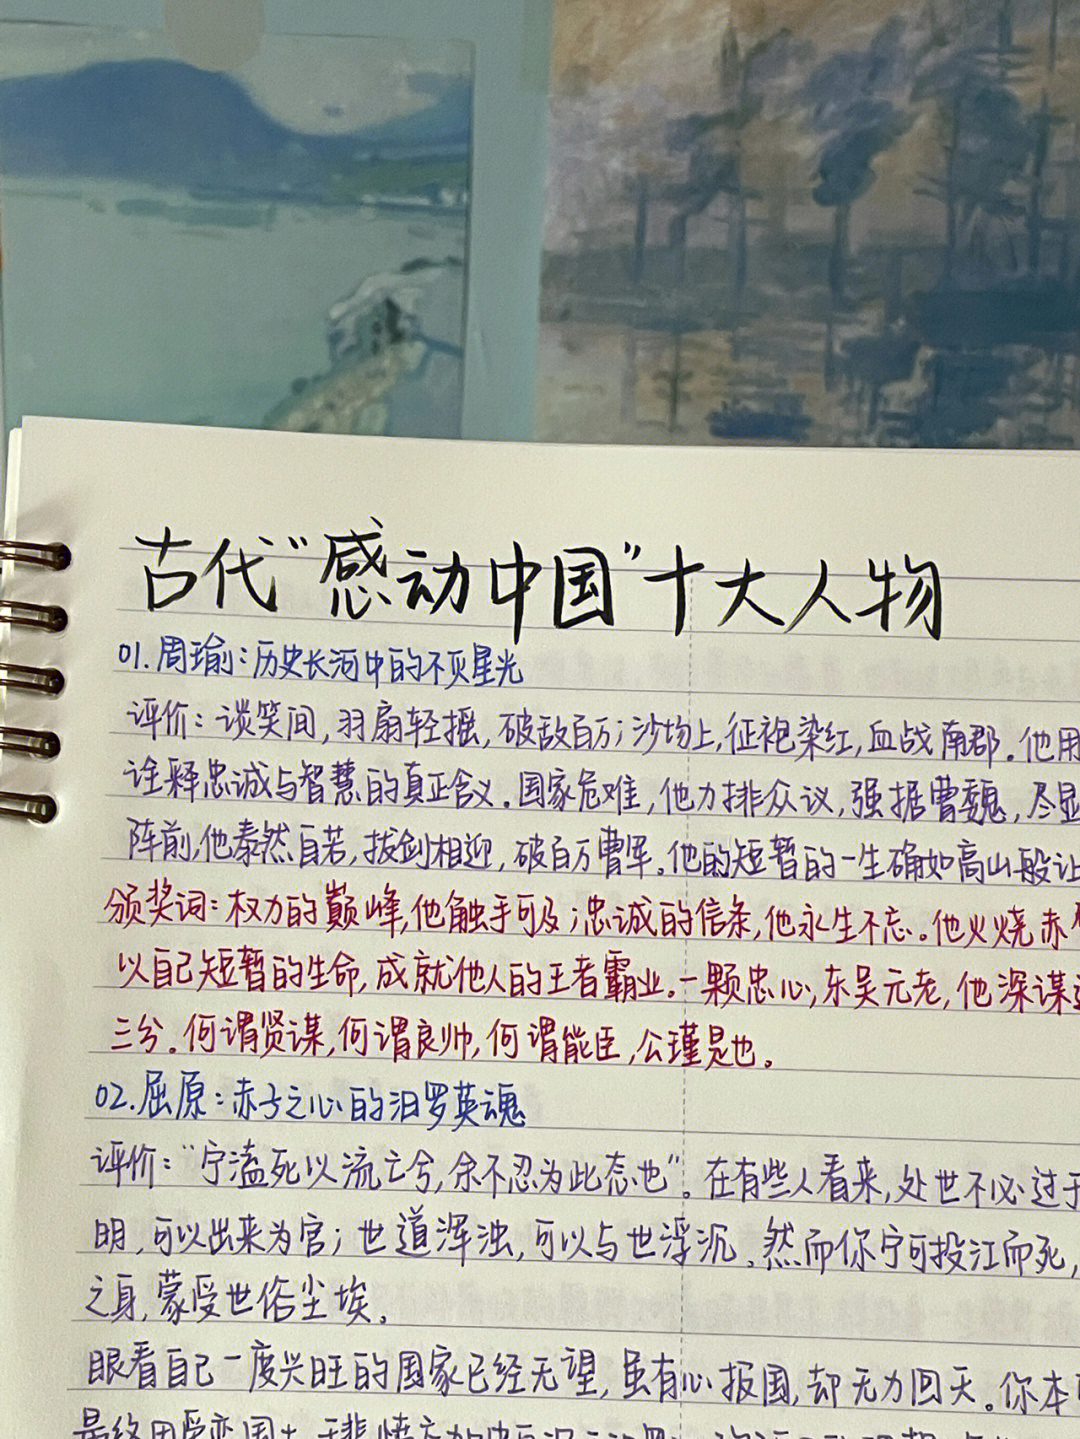 古代“感动中国”十大人物
01.周瑜:历史长河中的不灭星光
评价:谈笑间,羽扇轻摇,破敌百万;沙场上,征袍染红,血战南郡.他用
诠释忠诚与智慧的真正含义.国家危难,他力排众议,强据曹魏,尽显
阵前,他泰然自若,拔剑相迎,破百万曹军.他的短暂的一生确如高山般让
颁奖词:权力的巅峰,他触手可及;忠诚的信条,他永生不忘。他火烧赤
以自己短暂的生命,成就他人的王者霸业.一颗忠心,东吴元老,他深谋
三分.何谓贤谋,何谓良帅,何谓能臣,公瑾是也。
02.屈原:赤子之心的汨罗英魂
评价:“宁溘死以流亡兮,余不忍为此态也”。在有些人看来,处世不必过于
明,可以出来为官;世道浑浊,可以与世浮沉.然而你宁可投江而死,
之身,蒙受世俗尘埃.
眼看自己一度兴旺的国家已经无望,虽有心报国,却无力回天.你本